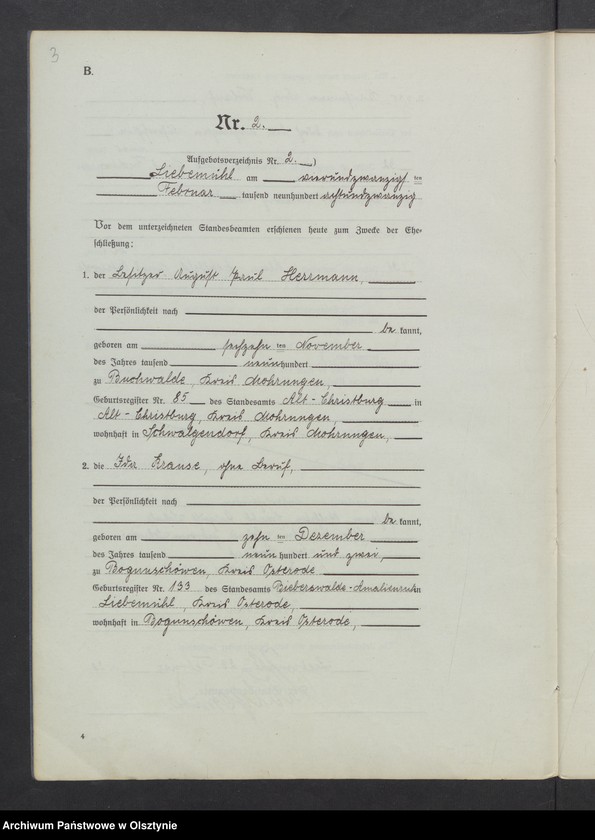 3
B.
Nr. 2.
Aufgebotsverzeichnis Nr. 2. )
Liebemühl am vierundzwanzigsten
Februar tausend neunhundert achtundzwanzig
Vor dem unterzeichneten Standesbeamten erschienen heute zum Zwecke der Ehe-
schließung:
1. der Besitzer August Paul Herrmann,
der Persönlichkeit nach
be kannt,
geboren am sechzehn ten November
des Jahres tausend neunhundert
zu Buchwalde, Kreis Mohrungen,
Geburtsregister Nr. 85 des Standesamts Alt-Christburg in
Alt-Christburg, Kreis Mohrungen,
wohnhaft in Schwalgendorf, Kreis Mohrungen,
2. die Ida Krause, ohne Beruf,
der Persönlichkeit nach
be kannt,
geboren am zehn ten Dezember
des Jahres tausend neunhundert und zwei,
zu Bogunschöwen, Kreis Osterode
Geburtsregister Nr. 133 des Standesamts Bieberswalde-Amalienruh in
Liebemühl, Kreis Osterode,
wohnhaft in Bogunschöwen, Kreis Osterode,
4
Archiwum Państwowe w Olsztynie